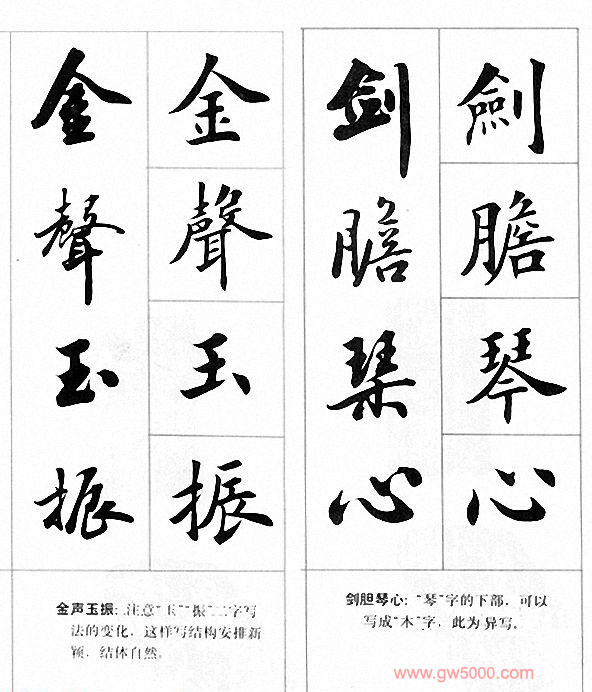 劍膽琴心
劍膽琹心
剑胆琴心：“琴”字的下部，可以
写成“木”字，此为异写。
金聲玉振
金聲玉振
金声玉振：注意“玉”“振”二字写
法的变化，这样写结构安排新
颖，结体自然。
www.gw5000.com